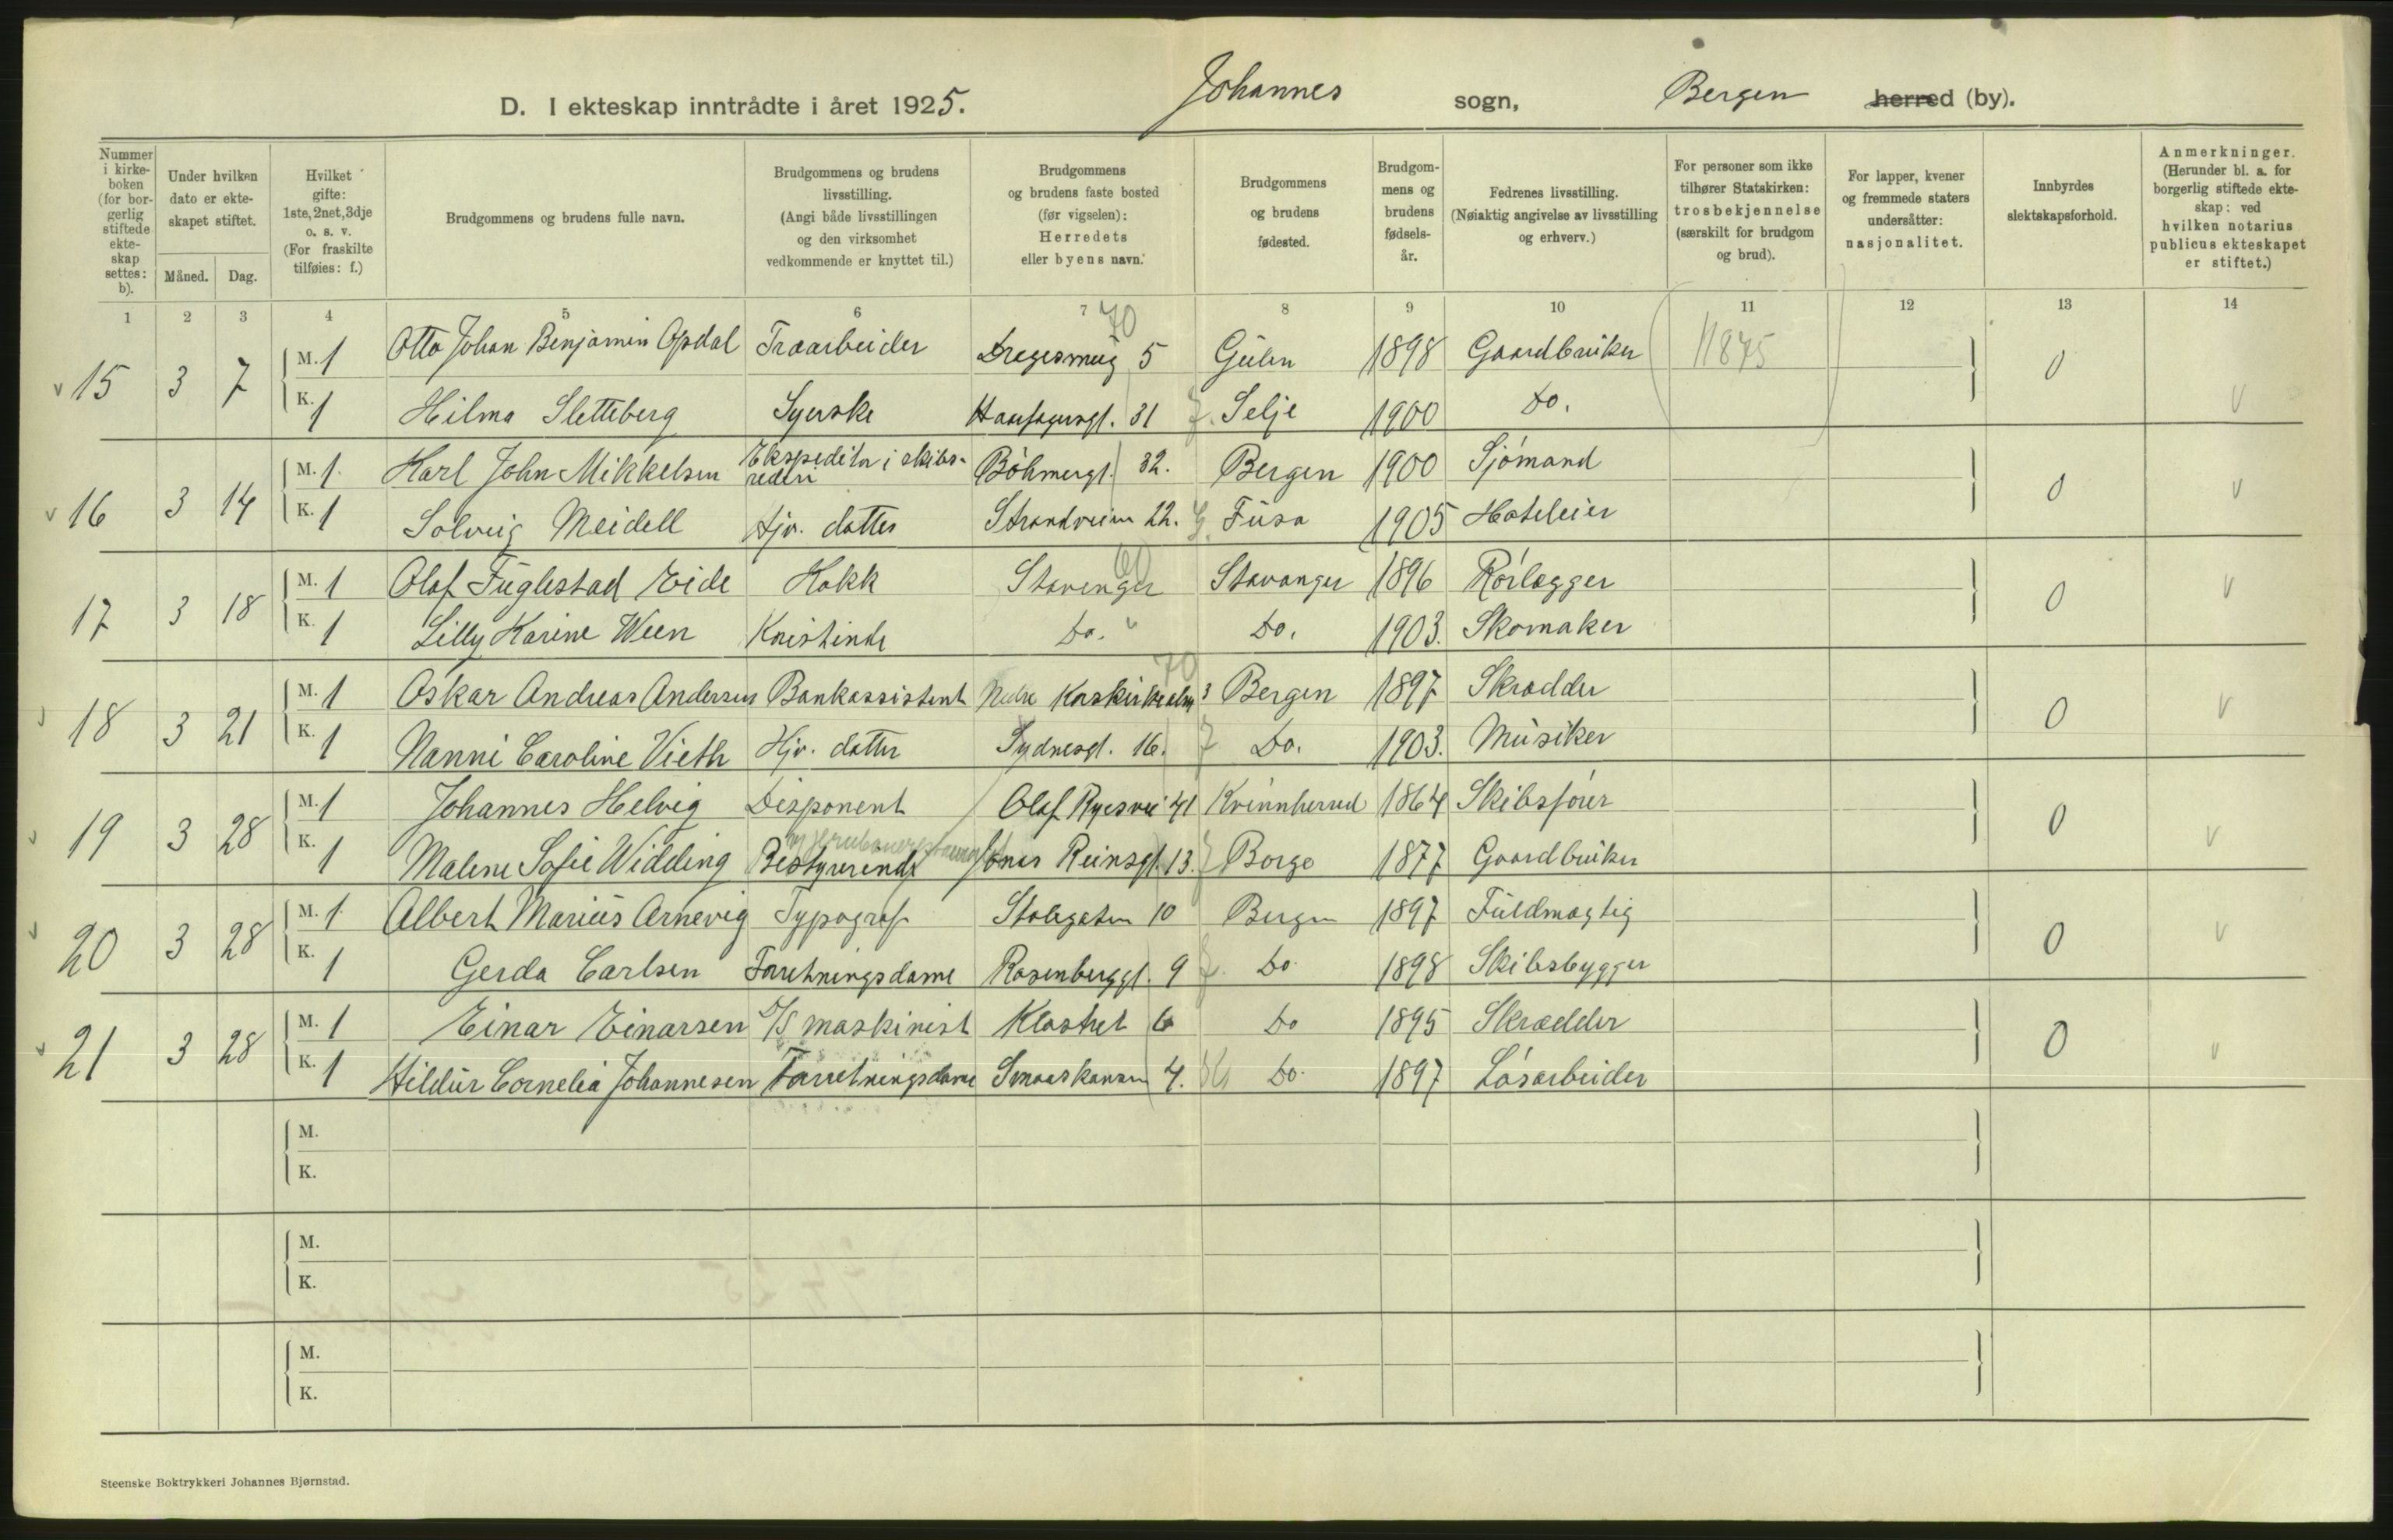 D. I ekteskap inntrådte i året 1925. Johannes sogn, Bergen herred (by).
Nummer i kirkeboken (for borgerlig stiftede ekteskap settes: b).
Under hvilken dato er ekteskapet stiftet.
Måned. Dag.
Hvilket gifte: 1ste, 2net, 3dje o. s. v. (For fraskilte tilføies: f.)
Brudgommens og brudens fulle navn.
Brudgommens og brudens livsstilling. (Angi både livsstillingen og den virksomhet vedkommende er knyttet til.)
Brudgommens og brudens faste bosted (før vigselen): Herredets eller byens navn.
Brudgommens og brudens fødested.
Brudgommens og brudens fødselsår.
Fedrenes livsstilling. (Nøiaktig angivelse av livsstilling og erhverv.)
For personer som ikke tilhører Statskirken: trosbekjennelse (særskilt for brudgom og brud).
For lapper, kvener og fremmede staters undersåtter: nasjonalitet.
Innbyrdes slektskapsforhold.
Anmerkninger. (Herunder bl. a. for borgerlig stiftede ekteskap: ved hvilken notarius publicus ekteskapet er stiftet.)
1 2 3 4 5 6 7 8 9 10 11 12 13 14
70
15 3 7 M. 1 Otto Johan Benjamin Opdal Træarbeider Dregesmug 5 Gulen 1898 Gaardbruker 11875 0
K. 1 Hilma Sletteberg Syerske Haarfagersgt. 31 Selje 1900 Do. v
16 3 14 M. 1 Karl John Mikkelsen Ekspeditør i skibsrederi Böhmergt. 32. Bergen 1900 Sjómand 0 v
K. 1 Solveig Meidell Hjv. datter Strandveien 22. Fusa 1905 Hoteleier
60
17 3 18 M. 1 Olaf Fuglestad Eide Kokk Stavanger Stavanger 1896 Rórlægger 0 v
K. 1 Lilly Karine Ween Do. Do. 1903. Skomaker
70
18 3 21 M. 1 Oskar Andreas Andersen Bankassistent Nedre Korskirkealm 3 Bergen 1897 Skrædder 0 v
K. 1 Nanni Caroline Vieth Hjv. datter Sydnesgt. 16. Do. 1903. Musiker
19 3 28 M. 1 Johannes Helvig Disponent Olaf Ryesvei 41 Kvinnherred 1864 Skibsfórer 0 v
K. 1 Malene Sofie Widding Bestyrerinde Jonas Reinsgt. 13. Borge 1877 Gaardbruker
20 3 28 M. 1 Albert Marius Arnevig Typograf Stølegaten 10 Bergen 1897 Fuldmægtig 0 v
K. 1 Gerda Carlsen Forretningsdame Rosenberggt. 9 Do. 1898 Skibsbygger
21 3 28 M. 1 Einar Einarsen D/S maskinist Klostret 6 Do 1895 Skrædder 0 v
K. 1 Hildur Cornelia Johannesen Forretningsdame Smaaskansen 4. Do. 1897 Lósarbeider
M.
K.
M.
K.
M.
K.
Steenske Boktrykkeri Johannes Bjørnstad.